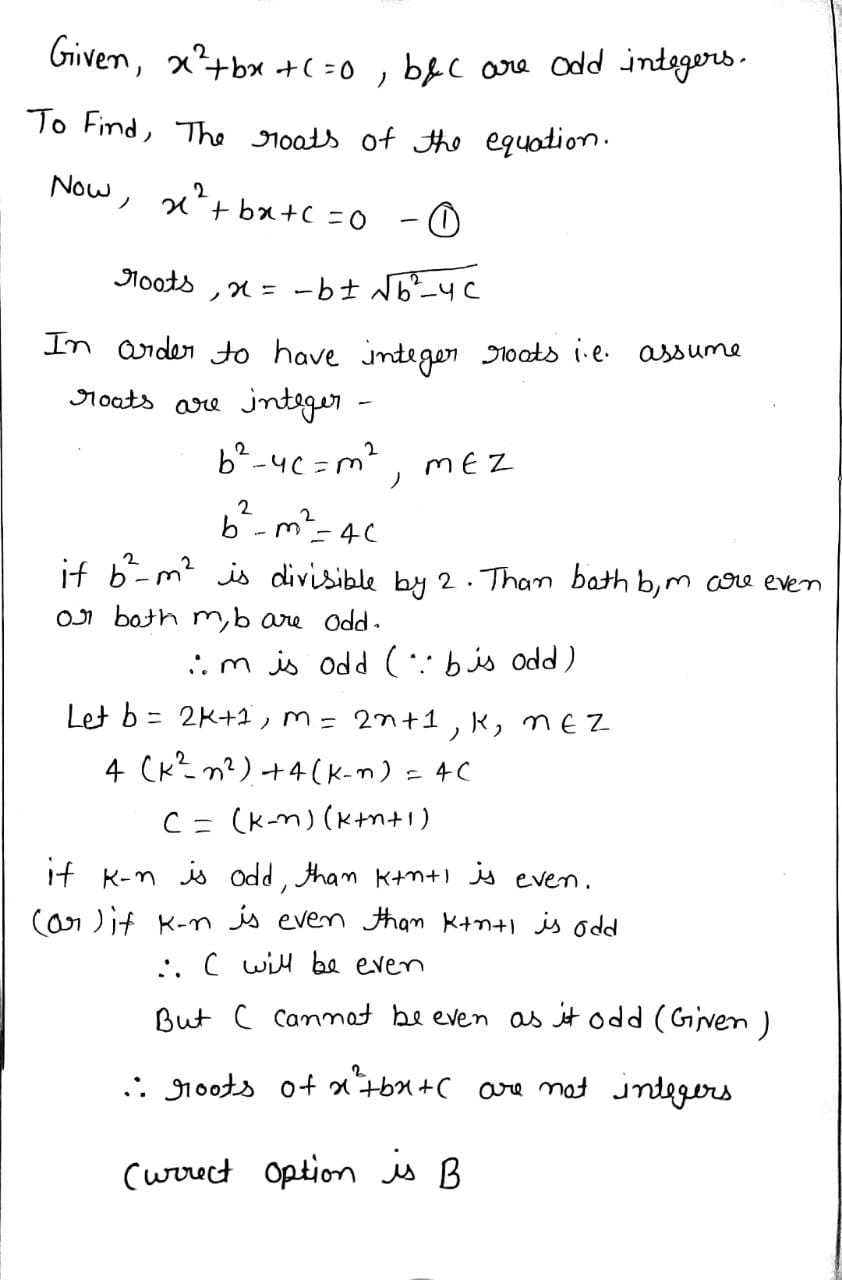 Given, x²+bx+c=0, b&c are odd integers.
To Find, The roots of the equation.
Now, x²+bx+c=0 -①
roots, x = -b± √b²-4c
In order to have integer roots i.e. assume
roots are integer -
b²-4c=m², m∈Z
b²-m²=4c
if b²-m² is divisible by 2. Than both b,m are even
or both m,b are odd.
∴ m is odd (∵ b is odd)
Let b = 2k+1, m = 2n+1, k, n∈Z
4 (k²-n²)+4(k-n) = 4c
c = (k-n)(k+n+1)
if k-n is odd, than k+n+1 is even.
(or) if k-n is even than k+n+1 is odd
∴ c will be even
But c cannot be even as it odd (Given)
∴ roots of x²+bx+c are not integers
Currect option is B